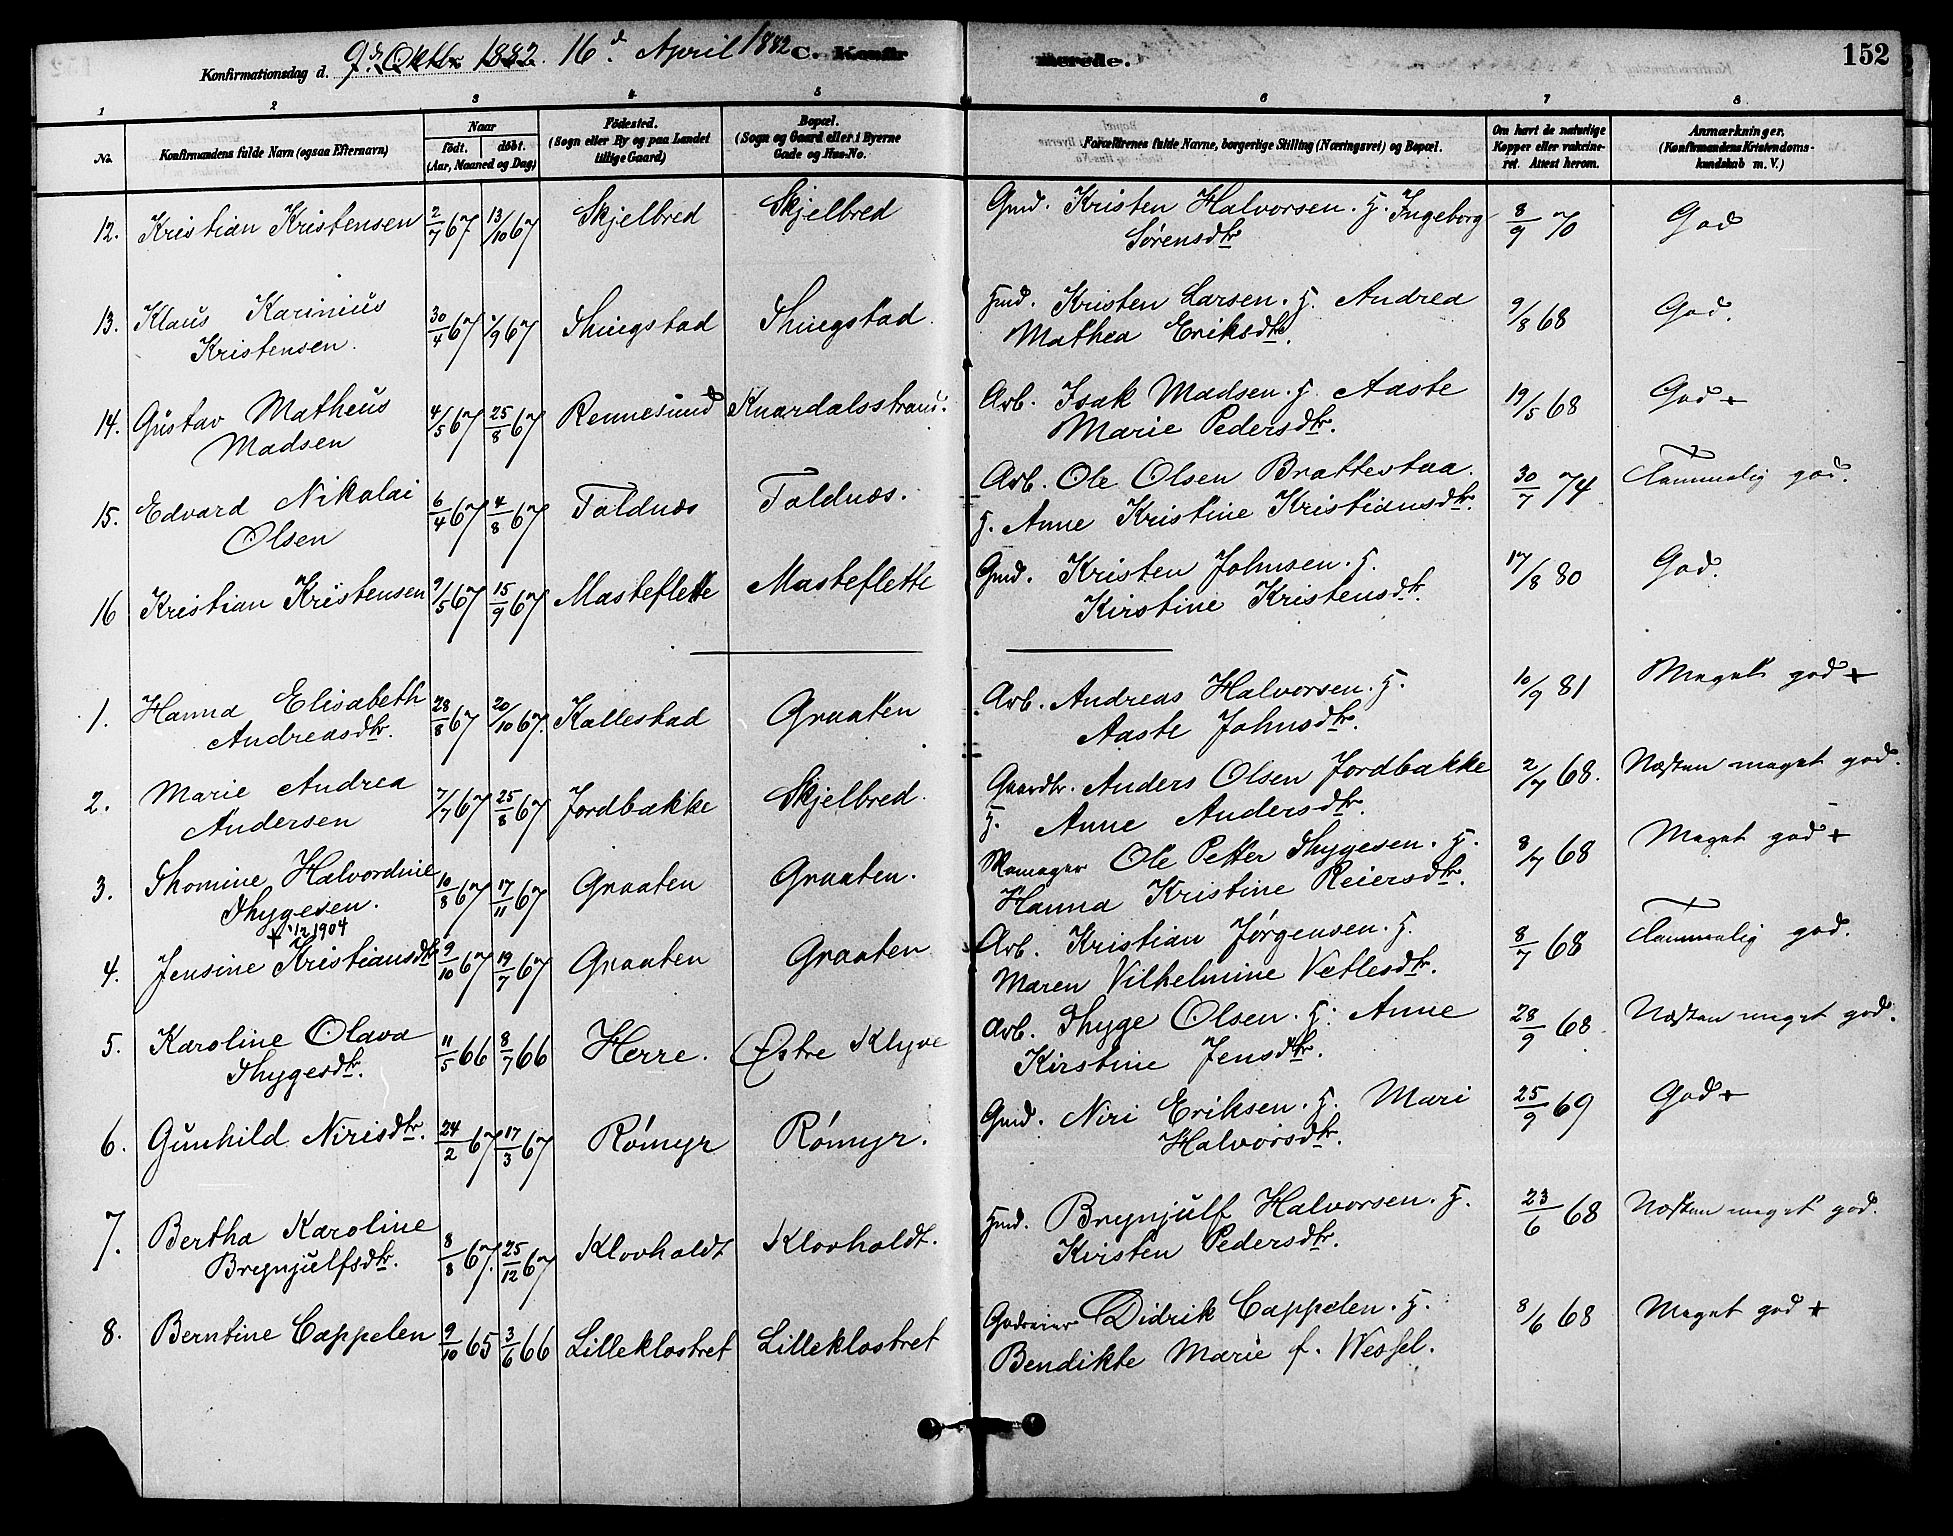 Konfirmationsdag d. 9d. Oktbr. 1882. 16d April 1882 C. Konfirmerede. 152
1 2 3 4 5 6 7 8
No. Konfirmandens fulde Navn (ogsaa Efternavn) Naar født. døbt. (Aar, Maaned og Dag) Födested. (Sogn eller By og paa Landet tillige Gaard) Bopæl. (Sogn og Gaard eller i Byerne Gade og Hus-No. Forældrenes fulde Navne, borgerlige Stilling (Næringsvei) og Bopæl. Om havt de naturlige Kopper eller vakcineret. Attest herom. Anmærkninger. (Konfirmandens Kristendomskundskab m. V.)
12. Kristian Kristensen 2/7 67 13/10 67 Skjelbred Skjelbred Gmd. Kristen Halvorsen. H. Ingeborg 8/9 70 God
Sørensdtr
13. Klaus Karinius 30/4 67 1/9 67 Thingstad Thingstad. Hmd. Kristen Larsen. H. Andrea 9/8 68 God.
Kristensen. Mathea Eriksdtr.
14. Gustav Matheus 4/5 67 25/8 67 Rennesund Knardalsstrand. Arb. Isak Madsen. H. Aaste 19/5 68 God +
Madsen Marie Pedersdtr.
15. Edvard Nikolai 6/4 67 4/8 67 Toldnæs Toldnæs. Arb. Ole Olsen Brattestaa. 30/7 74 Tammelig god.
Olsen H. Anne Kristine Kristiansdtr.
16 Kristian Kristensen 9/5 67 15/9 67 Masteflette Masteflette Gmd. Kristen Johnsen. H. 17/8 80 God.
Kirstine Kristensdtr.
1. Hanna Elisabeth 28/8 67 20/10 67. Kallestad Graaten Arb. Andreas Halvorsen. H. 10/9 81 Meget god +
Andreasdtr. Aaste Johnsdtr.
2. Marie Andrea 7/7 67 25/8 67 Jordbakke Skjelbred. Gaardbr. Anders Olsen Jordbakke 2/7 68. Næsten meget god.
Andersen H. Anne Andersdtr.
3. Thomine Halvordine 10/8 67 17/11 67 Graaten Graaten. Skomager Ole Petter Thygesen. H. 8/7 68 Meget god +
Thygesen. Hanna Kristine Reiersdtr.
+ 1/12 1904
4. Jensine Kristiansdtr 9/10 67 19/7 67 Graaten Graaten Arb. Kristian Jørgensen. H. 8/7 68 Tammelig god.
Maren Vilhelmine Vetlesdtr.
5. Karoline Olava 11/5 66 8/7 66 Herre. Østre Klyve Arb. Thyge Olsen. H. Anne 28/9 68. Næsten meget god.
Thygesdtr. Kirstine Jensdtr.
6. Gunhild Nirisdtr. 24/2 67 17/3 67 Rømyr Rømyr. Gmd. Niri Eriksen. H. Mari 25/9 69 God +
Halvorsdtr.
7. Bertha Karoline 8/8 67. 25/12 67 Klovholdt Klovholdt. Hmd. Brynjulf Halvorsen. H. 23/6 68 Næsten meget god.
Brynjulfsdtr. Kirsten Pedersdtr.
8. Berntine Cappelen 9/10 65 3/6 66 Lilleklostret Lilleklostret Godseier Didrik Cappelen. H. 8/6 68 Meget god +
Bendikte Marie f. Wessel.